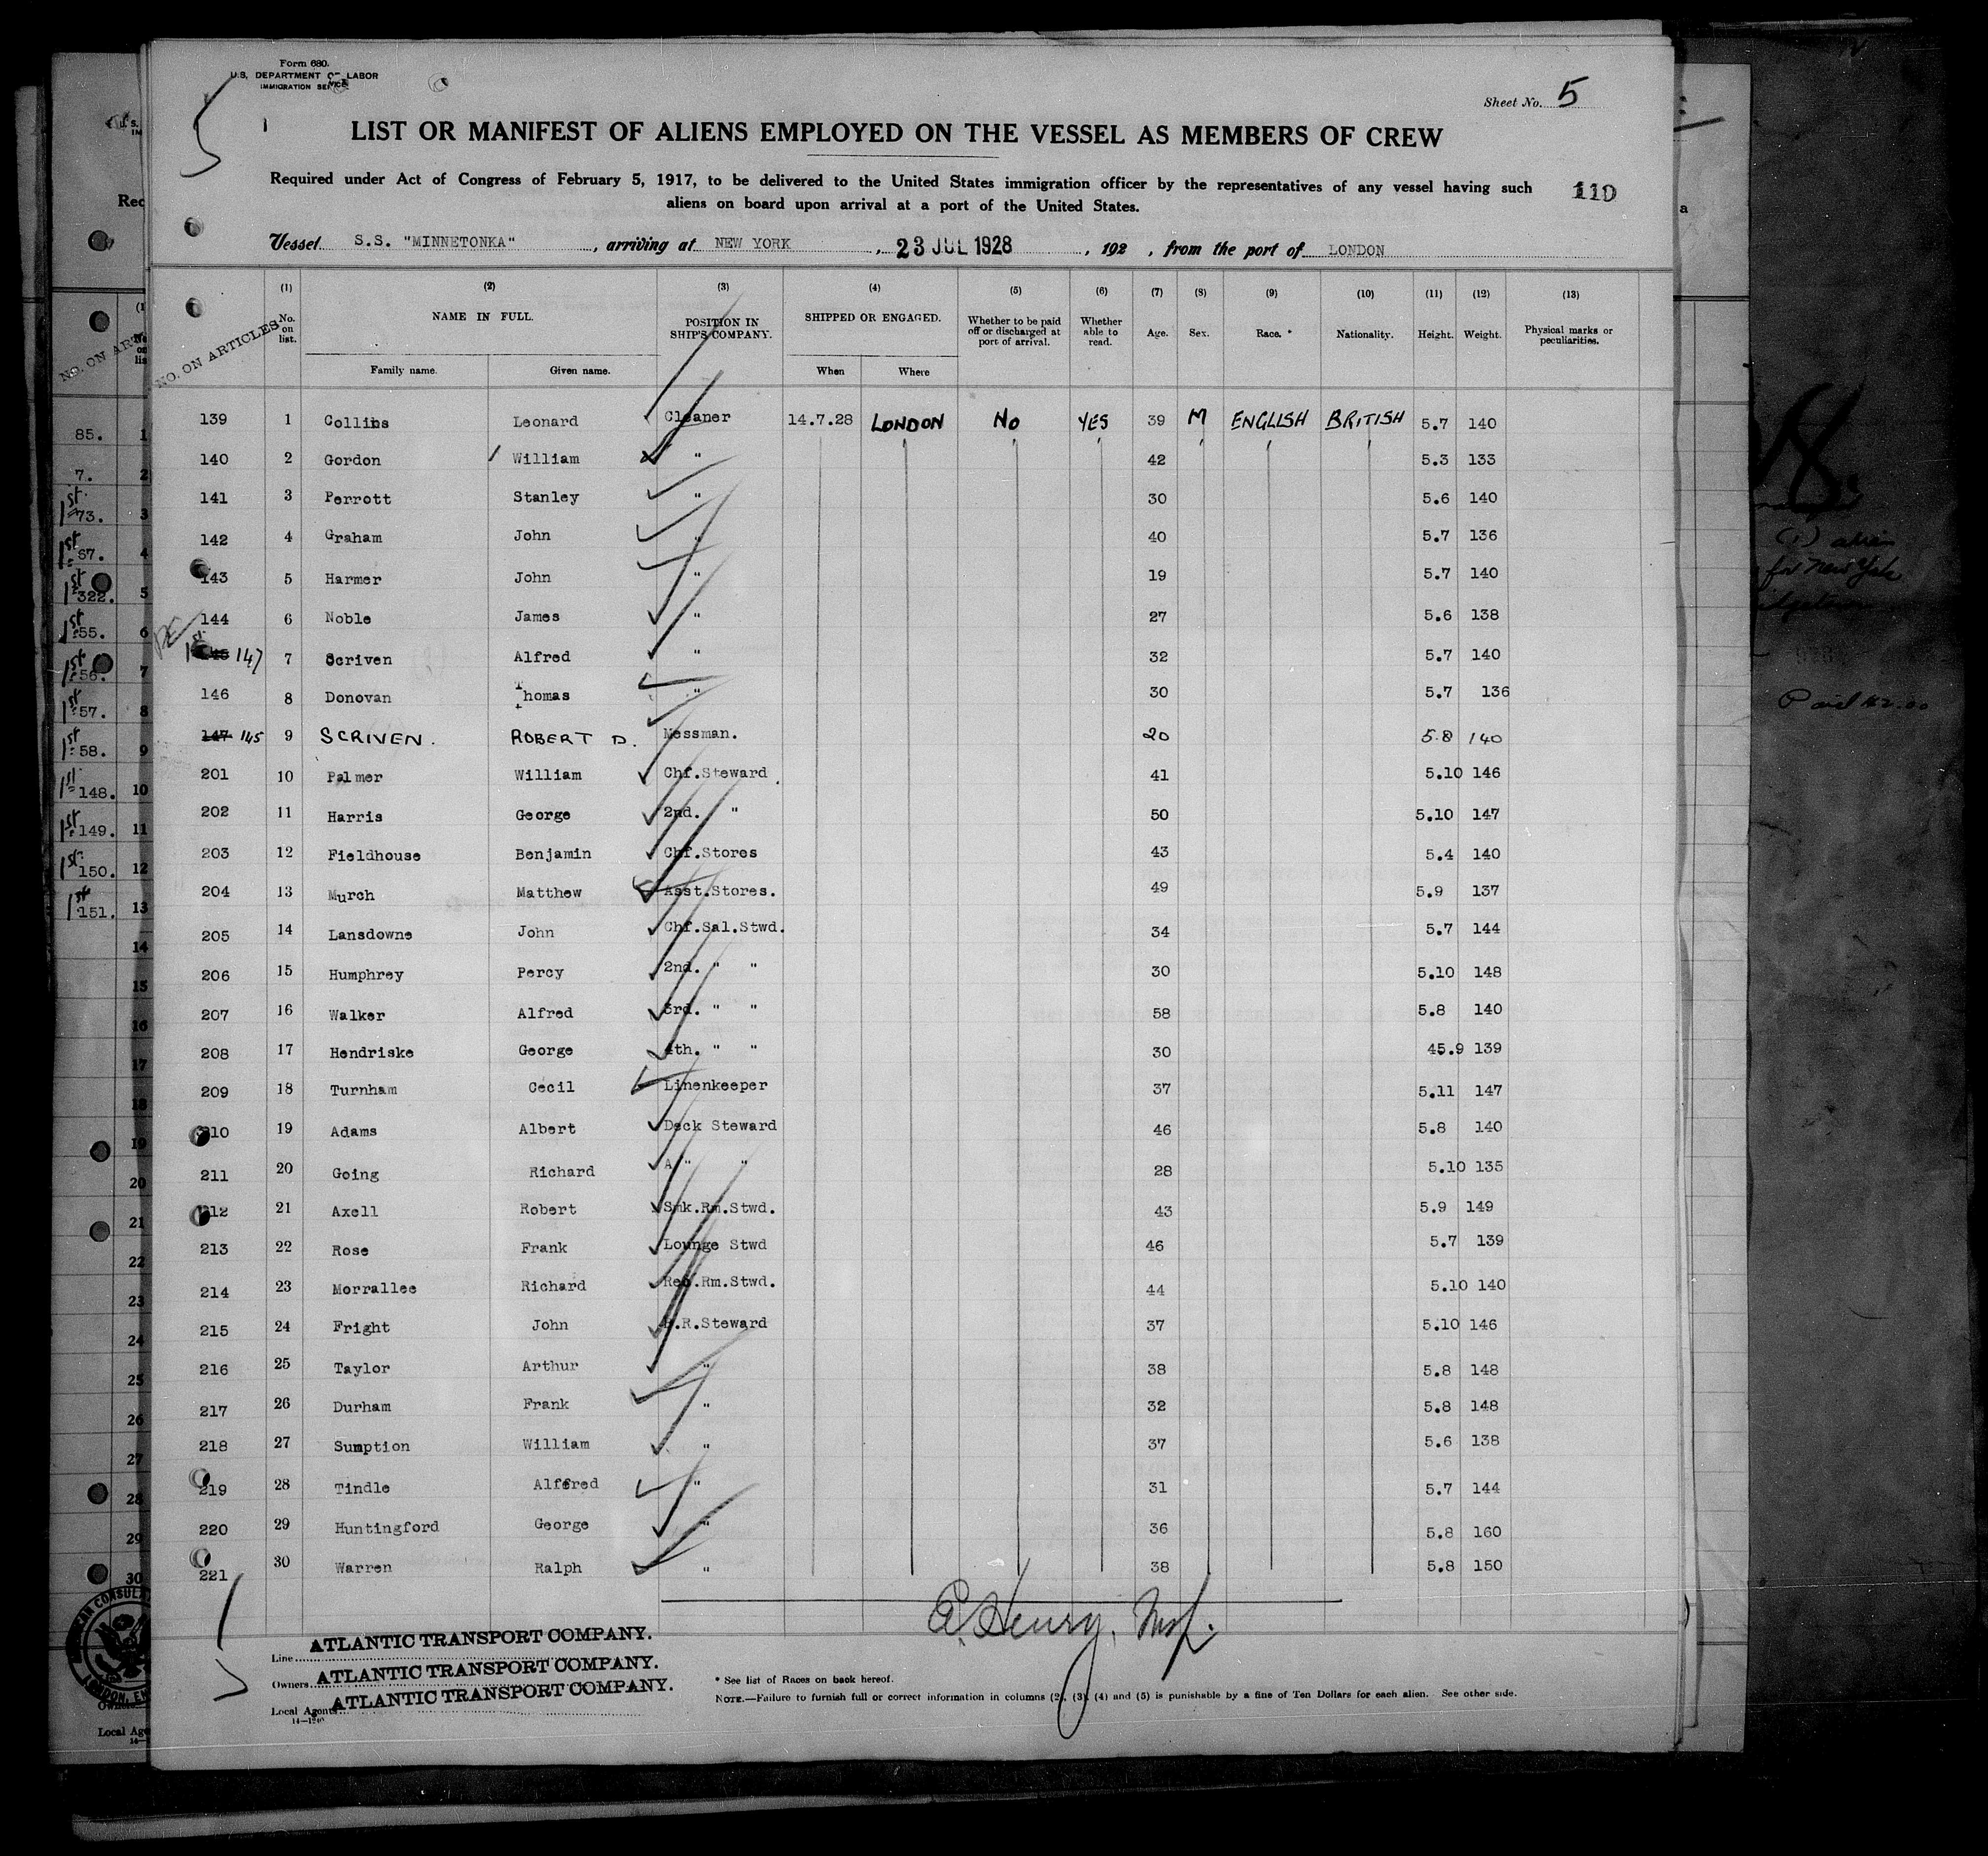 Form 680.
U.S. DEPARTMENT OF LABOR
IMMIGRATION SERVICE
Sheet No. 5
LIST OR MANIFEST OF ALIENS EMPLOYED ON THE VESSEL AS MEMBERS OF CREW
Required under Act of Congress of February 5, 1917, to be delivered to the United States immigration officer by the representatives of any vessel having such
aliens on board upon arrival at a port of the United States.
110
Vessel S.S. "MINNETONKA", arriving at NEW YORK, 23 JUL 1928, 192 , from the port of LONDON
NO. ON ARTICLES
(1) (2) (3) (4) (5) (6) (7) (8) (9) (10) (11) (12) (13)
No. on list. NAME IN FULL. POSITION IN SHIP'S COMPANY. SHIPPED OR ENGAGED. Whether to be paid off or discharged at port of arrival. Whether able to read. Age. Sex. Race. * Nationality. Height. Weight. Physical marks or peculiarities.
Family name. Given name. When Where
139 1 Collins Leonard Cleaner 14.7.28 LONDON No YES 39 M ENGLISH BRITISH 5.7 140
140 2 Gordon William " 42 5.3 133
141 3 Perrott Stanley " 30 5.6 140
142 4 Graham John " 40 5.7 136
143 5 Harmer John " 19 5.7 140
144 6 Noble James " 27 5.6 138
147 7 Scriven Alfred " 32 5.7 140
146 8 Donovan Thomas " 30 5.7 136
147 145 9 SCRIVEN. ROBERT D. Messman. 20 5.8 140
201 10 Palmer William Chf.Steward. 41 5.10 146
202 11 Harris George 2nd. " 50 5.10 147
203 12 Fieldhouse Benjamin Chf.Stores 43 5.4 140
204 13 Murch Matthew Asst.Stores. 49 5.9 137
205 14 Lansdowne John Chf.Sal.Stwd. 34 5.7 144
206 15 Humphrey Percy 2nd. " " 30 5.10 148
207 16 Walker Alfred 3rd. " " 58 5.8 140
208 17 Hendriske George 4th. " " 30 45.9 139
209 18 Turnham Cecil Linenkeeper 37 5.11 147
210 19 Adams Albert Deck Steward 46 5.8 140
211 20 Going Richard A/" " 28 5.10 135
212 21 Axell Robert Smk.Rm.Stwd. 43 5.9 149
213 22 Rose Frank Lounge Stwd 46 5.7 139
214 23 Morrallee Richard Rec.Rm.Stwd. 44 5.10 140
215 24 Fright John B.R.Steward 37 5.10 146
216 25 Taylor Arthur " 38 5.8 148
217 26 Durham Frank " 32 5.8 148
218 27 Sumption William " 37 5.6 138
219 28 Tindle Alffred " 31 5.7 144
220 29 Huntingford George " 36 5.8 160
221 30 Warren Ralph " 38 5.8 150
Line ATLANTIC TRANSPORT COMPANY.
Owners ATLANTIC TRANSPORT COMPANY.
Local Agents ATLANTIC TRANSPORT COMPANY.
14—1240
* See list of Races on back hereof.
NOTE.—Failure to furnish full or correct information in columns (2), (3), (4) and (5) is punishable by a fine of Ten Dollars for each alien. See other side.